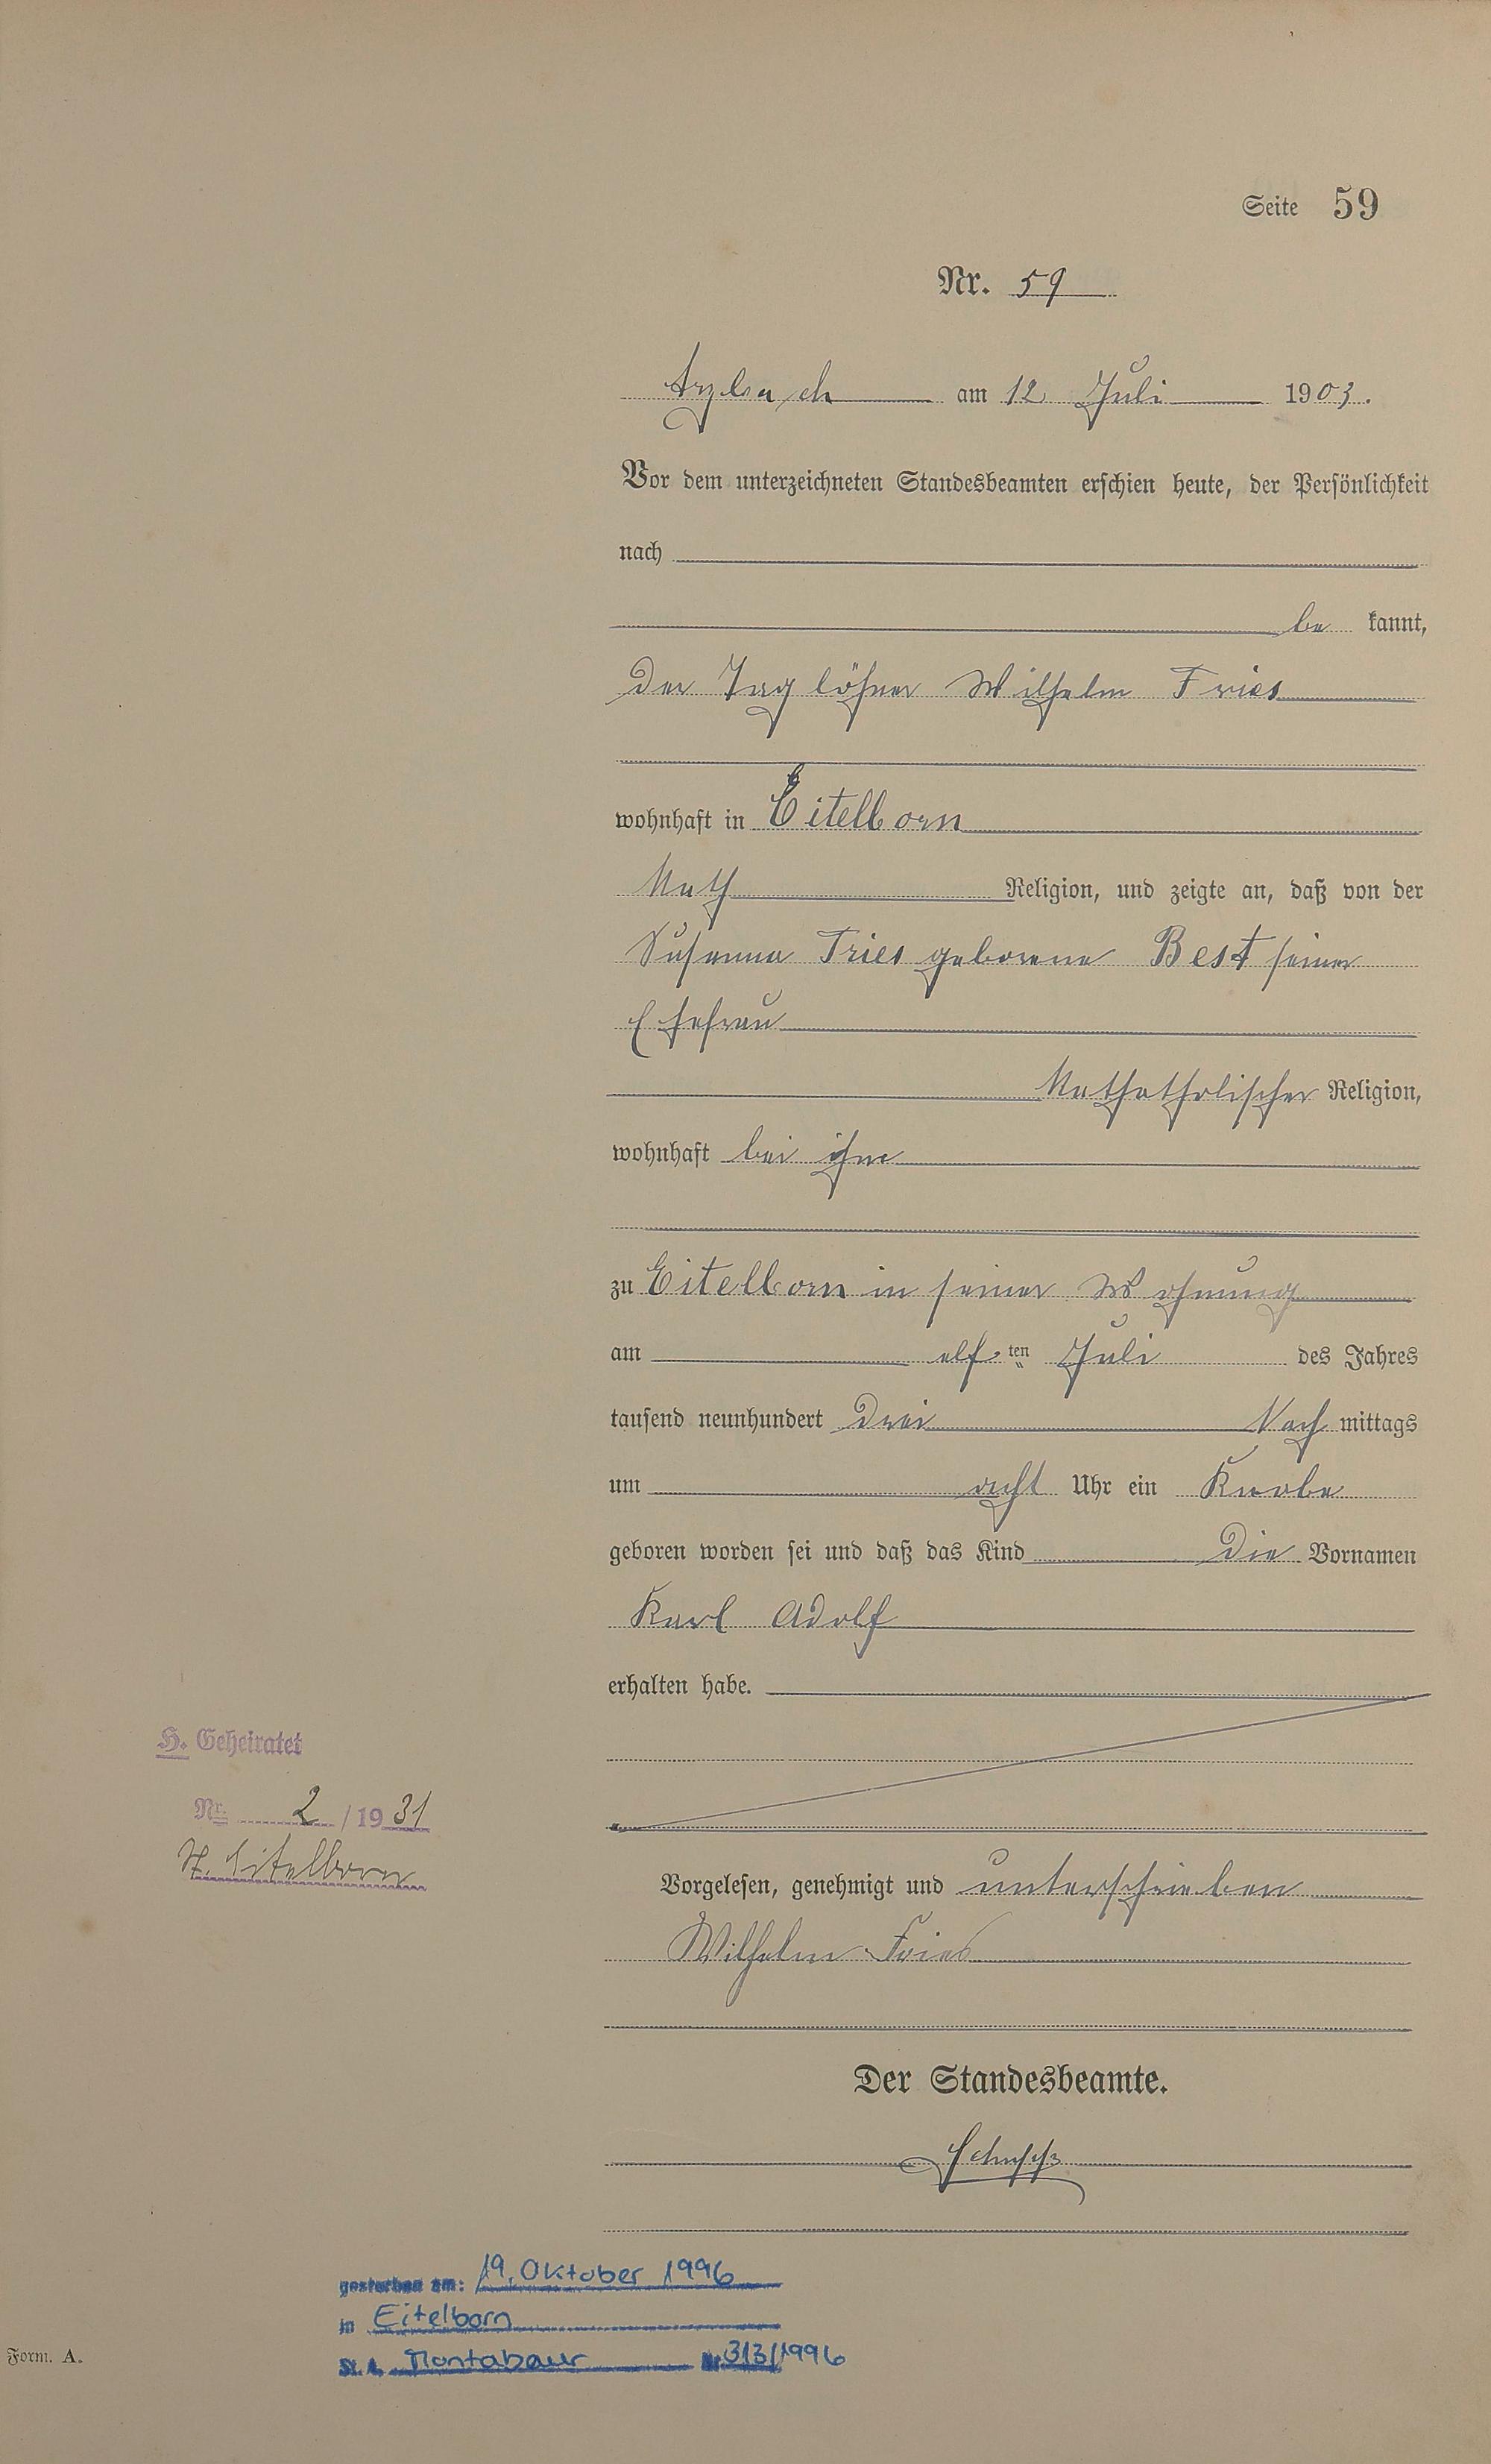 Seite 59
Nr. 59
Arzbach am 12. Juli 1903.
Vor dem unterzeichneten Standesbeamten erschien heute, der Persönlichkeit
nach
be kannt,
der Taglöhner Wilhelm Fries
wohnhaft in Eitelborn
Kath Religion, und zeigte an, daß von der
Susanna Fries geborene Best seiner
Ehefrau
Religion,
wohnhaft bei ihm
zu Eitelborn in seiner Wohnung
am elf ten Juli des Jahres
tausend neunhundert drei Nach mittags
um acht Uhr ein Knabe
geboren worden sei und daß das Kind die Vornamen
Karl Adolf
erhalten habe.
H. Geheiratet
Nr. 2 / 19 31
St. Eitelborn
Vorgelesen, genehmigt und unterschrieben
Wilhelm Fries
Der Standesbeamte.
gestorben am: 19. Oktober 1996
in Eitelborn
St. A. Montabaur Nr. 313/1996
Form. A.